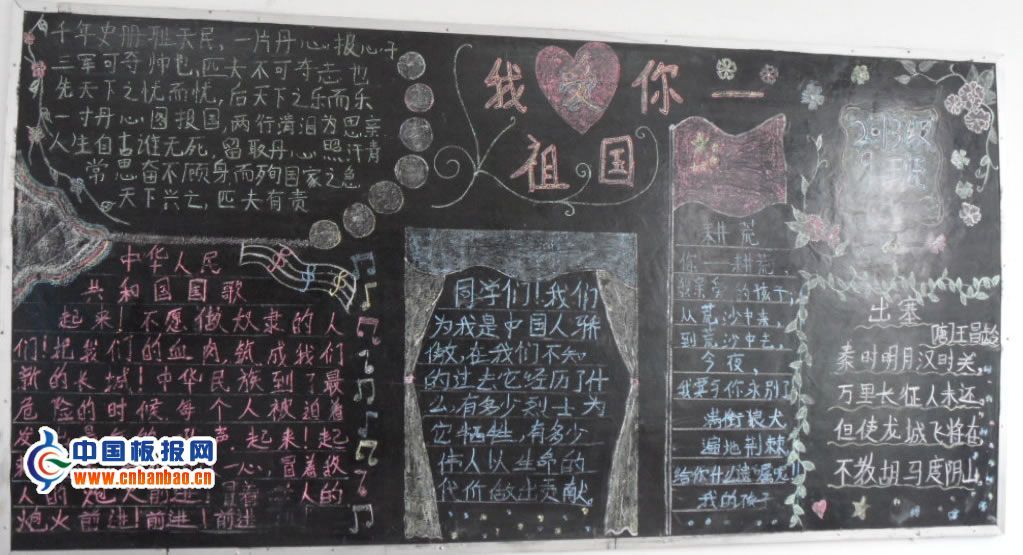 千年史册耻无民，一片丹心报心子
三军可夺帅也，匹夫不可夺志也
先天下之忧而忧，后天下之乐而乐
一寸丹心图报国，两行清泪为思亲
人生自古谁无死，留取丹心照汗青
常思奋不顾身而殉国家之急
天下兴亡，匹夫有责
我爱你
祖国
中华人民
共和国国歌
起来！不愿做奴隶的人
们！把我们的血肉，筑成我们
新的长城！中华民族到了最
危险的时候，每个人被迫着
声起来！起
一心，冒着敌
人的炮火前进 冒着 人的
炮火前进！前进！前进
同学们！我们
为我是中国人骄
傲，在我们不知
的过去它经历了什
么，有多少烈士为
它牺牲，有多少
伟人以生命的
代价做出贡献。
耕荒
你——耕荒，
我亲爱的孩子，
从荒沙中来，
到荒沙中去。
今夜，
我要与你永别了
满街狼犬
遍地荆棘
给你什么遗嘱呢
我的孩子
出塞
唐王昌龄
秦时明月汉时关，
万里长征人未还，
但使龙城飞将在
不教胡马度阴山
中国板报网
www.cnbanbao.cn